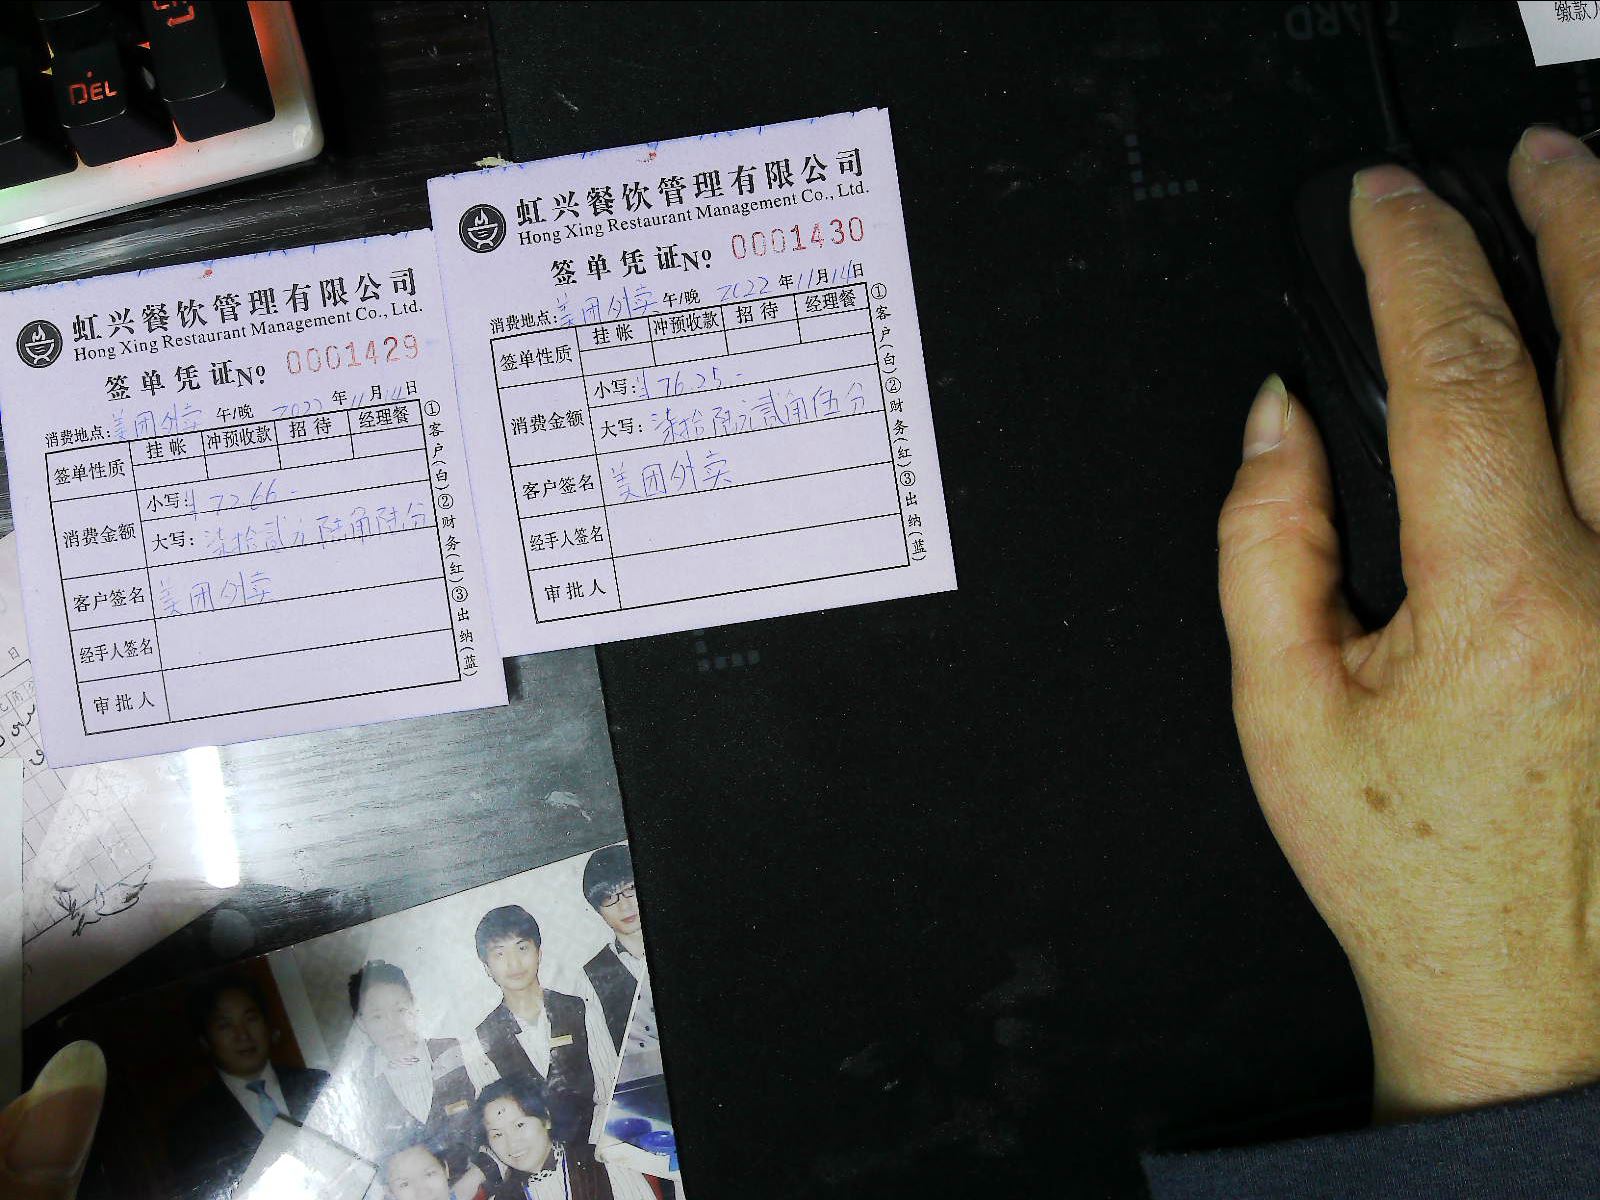 DEL
缴款
虹兴餐饮管理有限公司
Hong Xing Restaurant Management Co., Ltd.
签单凭证No 0001429
消费地点:美团外卖 午/晚 2022年11月14日
签单性质 挂帐 冲预收款 招待 经理餐
消费金额 小写:¥72.66-
大写:柒拾贰元陆角陆分
客户签名 美团外卖
经手人签名
审批人
①客户(白)②财务(红)③出纳(蓝)
虹兴餐饮管理有限公司
Hong Xing Restaurant Management Co., Ltd.
签单凭证No 0001430
消费地点:美团外卖 午/晚 2022年11月14日
签单性质 挂帐 冲预收款 招待 经理餐
消费金额 小写:¥76.25-
大写:柒拾陆元贰角伍分
客户签名 美团外卖
经手人签名
审批人
①客户(白)②财务(红)③出纳(蓝)